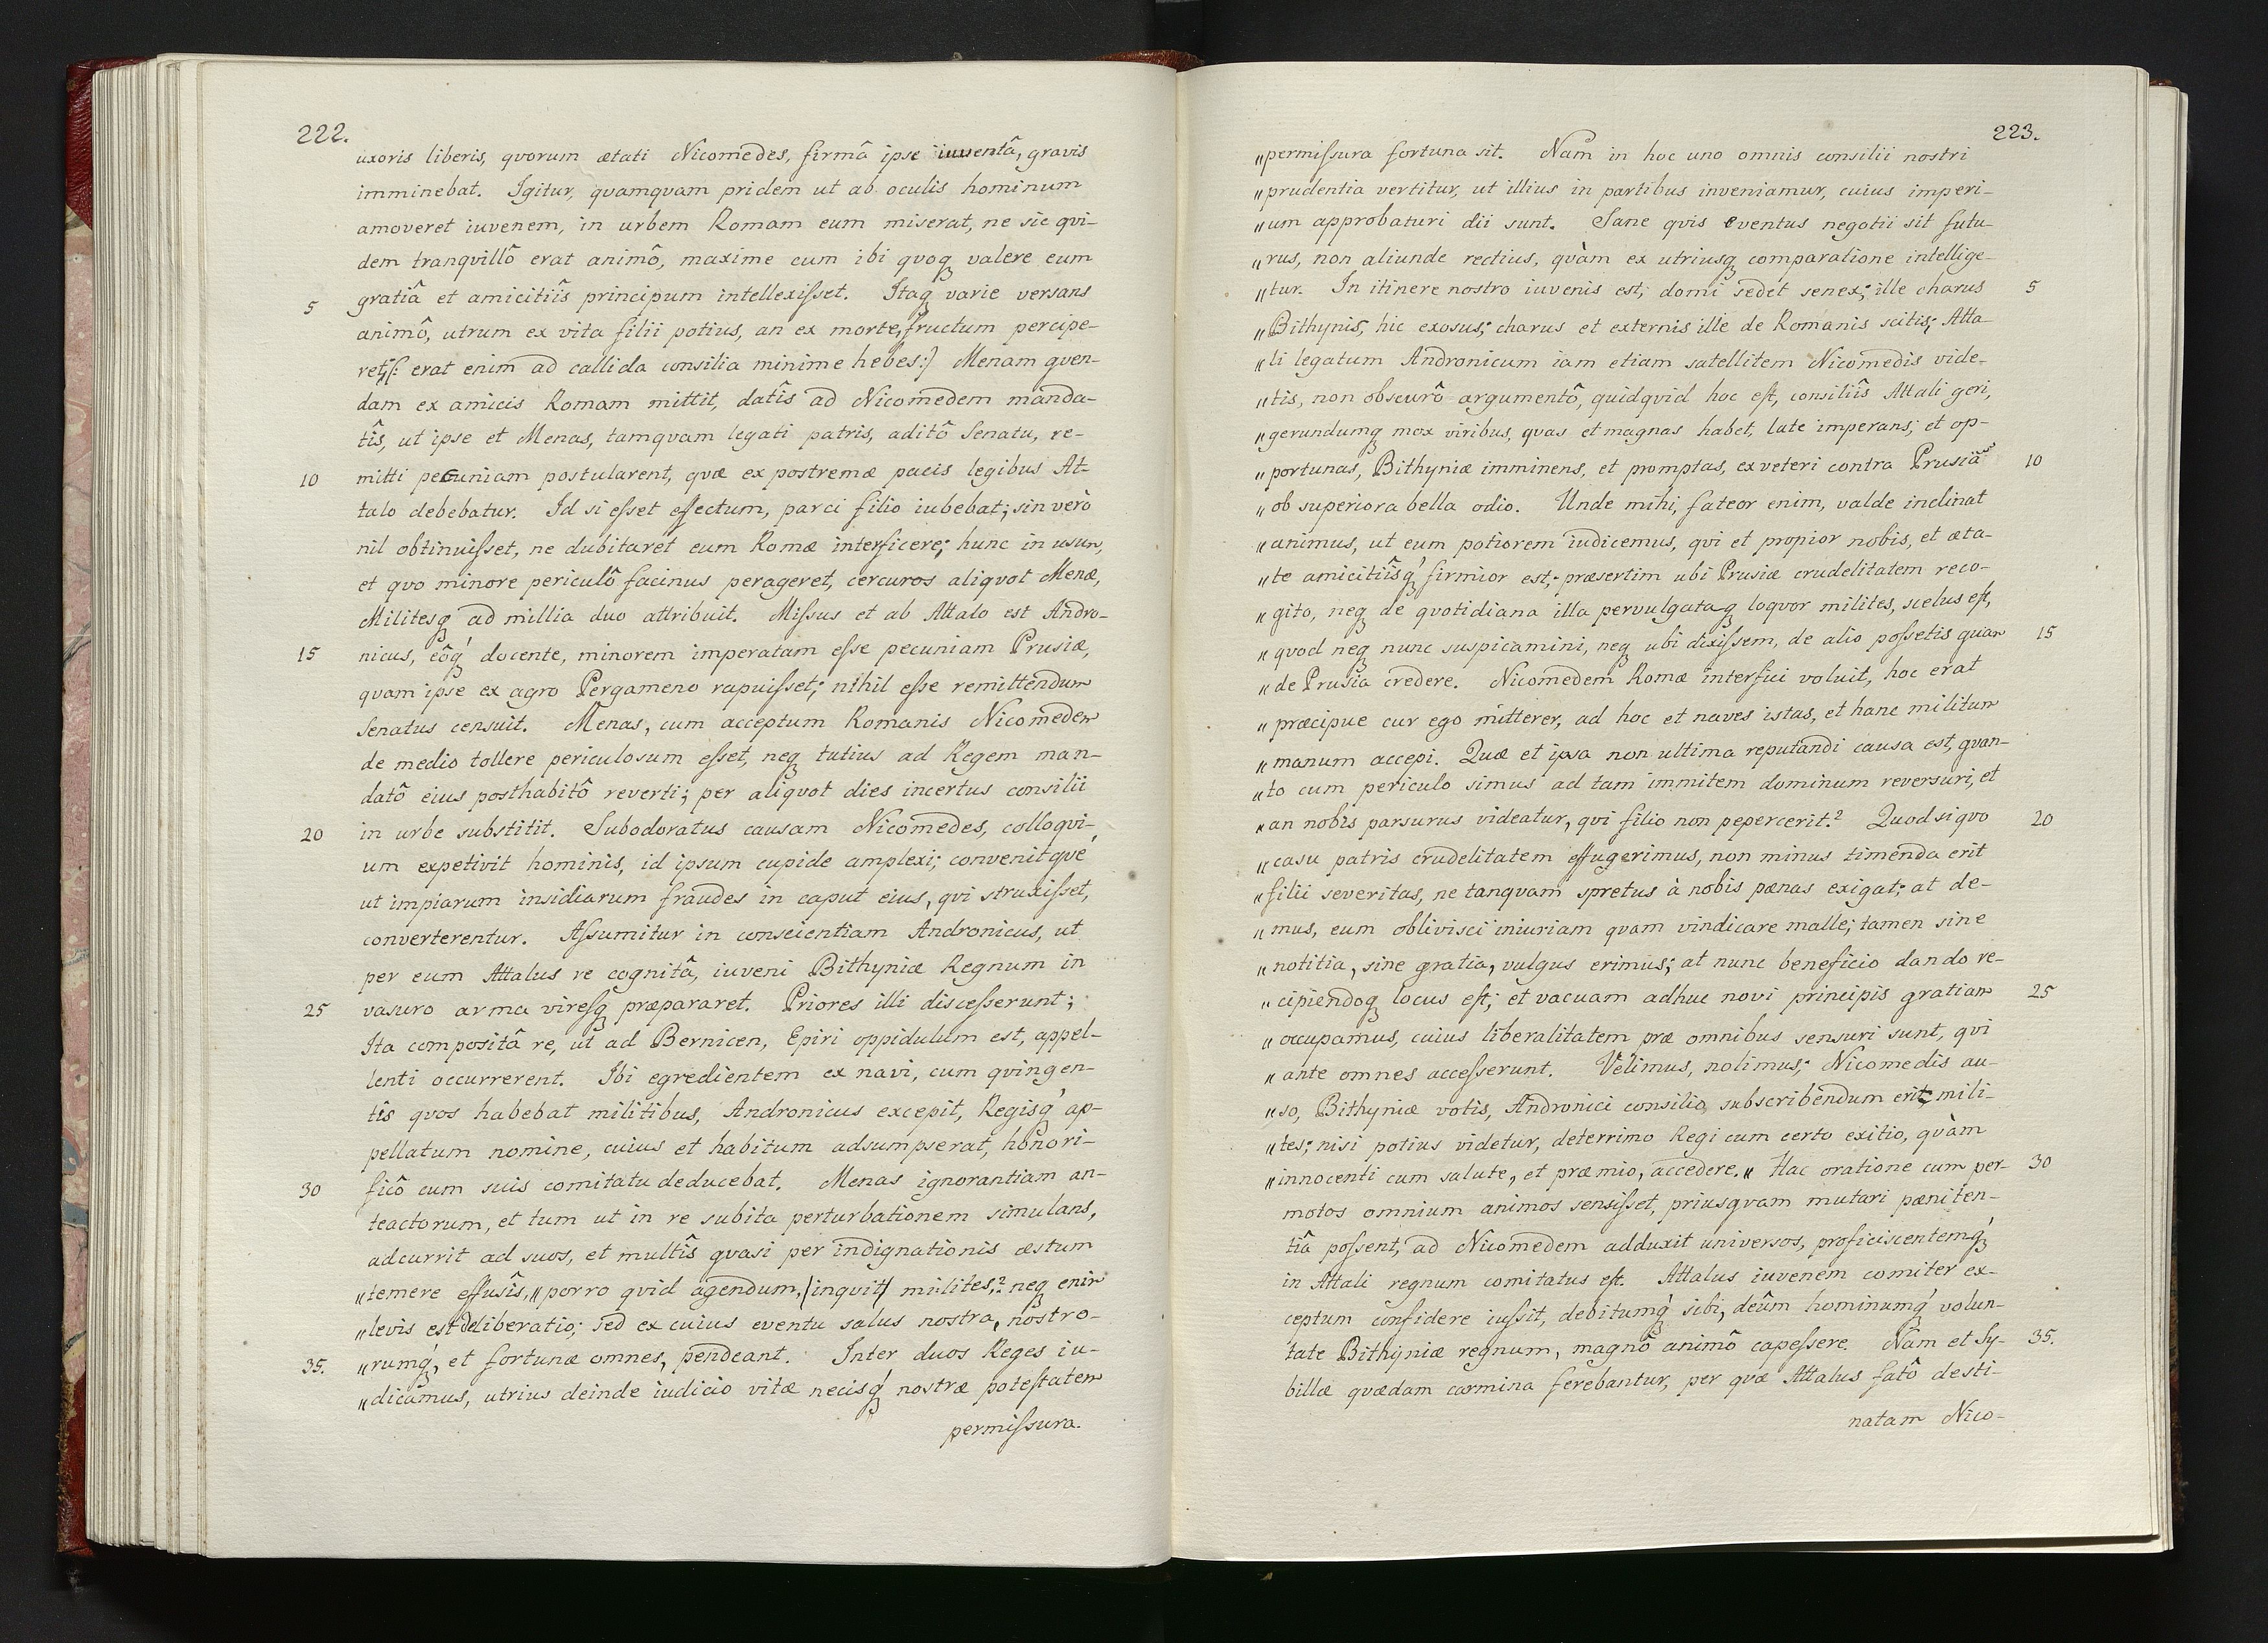 222.
uxoris liberis, qvorum ætati Nicomedes, firmâ ipse iuventâ, gravis
imminebat. Igitur, quamquam pridem ut ab oculis hominum
amoveret iuvenem, in urbem Romam eum miserat, ne sic qvi-
dem tranqvillô erat animô, maxime cum ibi qvoqꝫ valere eum
5 gratiâ et amicitiîs principum intellexiſset. Itaqꝫ varie versans
animô, utrum ex vita filii potius, an ex morte, fructum percipe-
ret, (: erat enim ad callida consilia minime hebes:) Menam qven-
dam ex amicis Romam mittit, datîs ad Nicomedem manda-
tîs, ut ipse et Menas, tamqvam legati patris, aditô Senatu, re-
10 mitti pecuniam postularent, qvæ ex postremæ pacis legibus At-
talo debebatur. Id si eſset effectum, parci filio iubebat; sin verò
nil obtinuiſset, ne dubitaret eum Romæ interficere; hunc in usum,
et qvo minore periculô facinus perageret, cercuros aliqvot Menæ,
Militesqꝫ ad millia duo attribuit. Miſsus et ab Attalo est Andro-
15 nicus, eôqꝫ́ docente, minorem imperatam eſse pecuniam Prusiæ,
qvam ipse ex agro Pergameno rapuiſset; nihil eſse remittendum
Senatus censuit. Menas, cum acceptum Romanis Nicomedem
de medio tollere periculosum eſset, neqꝫ tutius ad Regem man-
datô eius posthabitô reverti; per aliqvot dies incertus consilii
20 in urbe substitit. Subodoratus causam Nicomedes, colloqvi-
um expetivit hominis, id ipsum cupide amplexi; convenitqvé
ut impiarum insidiarum fraudes in caput eius, qvi struxiſset,
converterentur. Aſsumitur in conscientiam Andronicus, ut
per eum Attalus re cognitâ, iuveni Bithyniæ Regnum in
25 vasuro arma viresqꝫ præpararet. Priores illi disceſserunt;
Ita compositâ re, ut ad Bernicen, Epiri oppidulum est, appel-
lenti occurrerent. Ibi egredientem ex navi, cum qvingen-
tîs qvos habebat militibus, Andronicus excepit, Regisqꝫ́ ap-
pellatum nomine, cuius et habitum adsumpserat, honori-
30 ficô cum suis comitatu deducebat. Menas ignorantiam an-
teactorum, et tum ut in re subita perturbationem simulans,
adcurrit ad suos, et multîs qvasi per indignationis æstum
„temere effusîs, „porro qvid agendum, (inqvit) milites,? neqꝫ enim
„levis est deliberatio; sed ex cuius eventu salus nostra, nostro-
35. „rumqꝫ́, et fortunæ omnes, pendeant. Inter duos Reges iu-
„dicamus, utrius deinde iudicio vitæ necisqꝫ́ nostræ poteſtatem
permiſsura.
223.
„permiſsura fortuna sit. Nam in hoc uno omnis consilii nostri
„prudentia vertitur, ut illius in partibus inveniamur, cuius imperi-
„um approbaturi dii sunt. Sane qvis eventus negotii sit futu-
„rus, non aliunde rectius, qvàm ex utriusqꝫ comparatione intellige-
„tur. In itinere nostro iuvenis est; domi sedet senex; ille charus 5
„Bithynis, hic exosus; charus et externis ille de Romanis scitis; Atta-
„li legatum Andronicum iam etiam satellitem Nicomedis vide-
„tis, non obscurô argumentô, quidqvid hoc eſt, consiliîs Attali geri,
„gerundumqꝫ mox viribus, qvas et magnas habet, late imperans; et op-
„portunas, Bithyniæ imminens, et promptas, ex veteri contra Prusiam 10
„ob superiora bella odio. Unde mihi, fateor enim, valde inclinat
„animus, ut eum potiorem iudicemus, qvi et propior nobis, et æta-
„te amicitiîsqꝫ́ firmior est; præsertim ubi Prusiæ crudelitatem reco-
„gito, neqꝫ de qvotidiana illa pervulgataqꝫ loqvor milites, scelus eſt,
„qvod neqꝫ nunc suspicamini, neqꝫ ubi dixiſsem, de alio poſsetis qvam 15
„de Prusia credere. Nicomedem Romæ interfici voluit, hoc erat
„præcipue cur ego mitterer, ad hoc et naves istas, et hanc militum
„manum accepi. Quæ et ipsa non ultima reputandi causa est, qvan-
„to cum periculo simus ad tam immitem dominum reversuri, et
„an nobis parsurus videatur, qvi filio non pepercerit? Quod si qvo 20
„casu patris crudelitatem effugerimus, non minus timenda erit
„filii severitas, ne tanqvam spretus à nobis pœnas exigat; at de-
„mus, eum oblivisci iniuriam qvam vindicare malle; tamen sine
„notitia, sine gratia, vulgus erimus; at nunc beneficio dando re-
„cipiendoqꝫ locus eſt; et vacuam adhuc novi principis gratiam 25
„occupamus, cuius liberalitatem præ omnibus sensuri sunt, qvi
„ante omnes acceſserunt. Velimus, nolimus; Nicomedis au-
„so, Bithyniæ votis, Andronici consilio, subscribendum erit, mili-
„tes; nisi potius videtur, deterrimo Regi cum certo exitio, qvàm
„innocenti cum salute, et præmio, accedere. „ Hac oratione cum per- 30
motos omnium animos sensiſset, priusqvam mutari pœniten-
tiâ poſsent, ad Nicomedem adduxit universos, proficiscentemqꝫ́
in Attali regnum comitatus eſt. Attalus iuvenem comiter ex-
ceptum confidere iuſsit, debitumqꝫ́ sibi, deûm hominumqꝫ́ volun-
tate Bithyniæ regnum, magnô animô capeſsere. Nam et Sy- 35.
billæ qvædam carmina ferebantur, per qvæ Attalus fatô desti-
natam Nico-